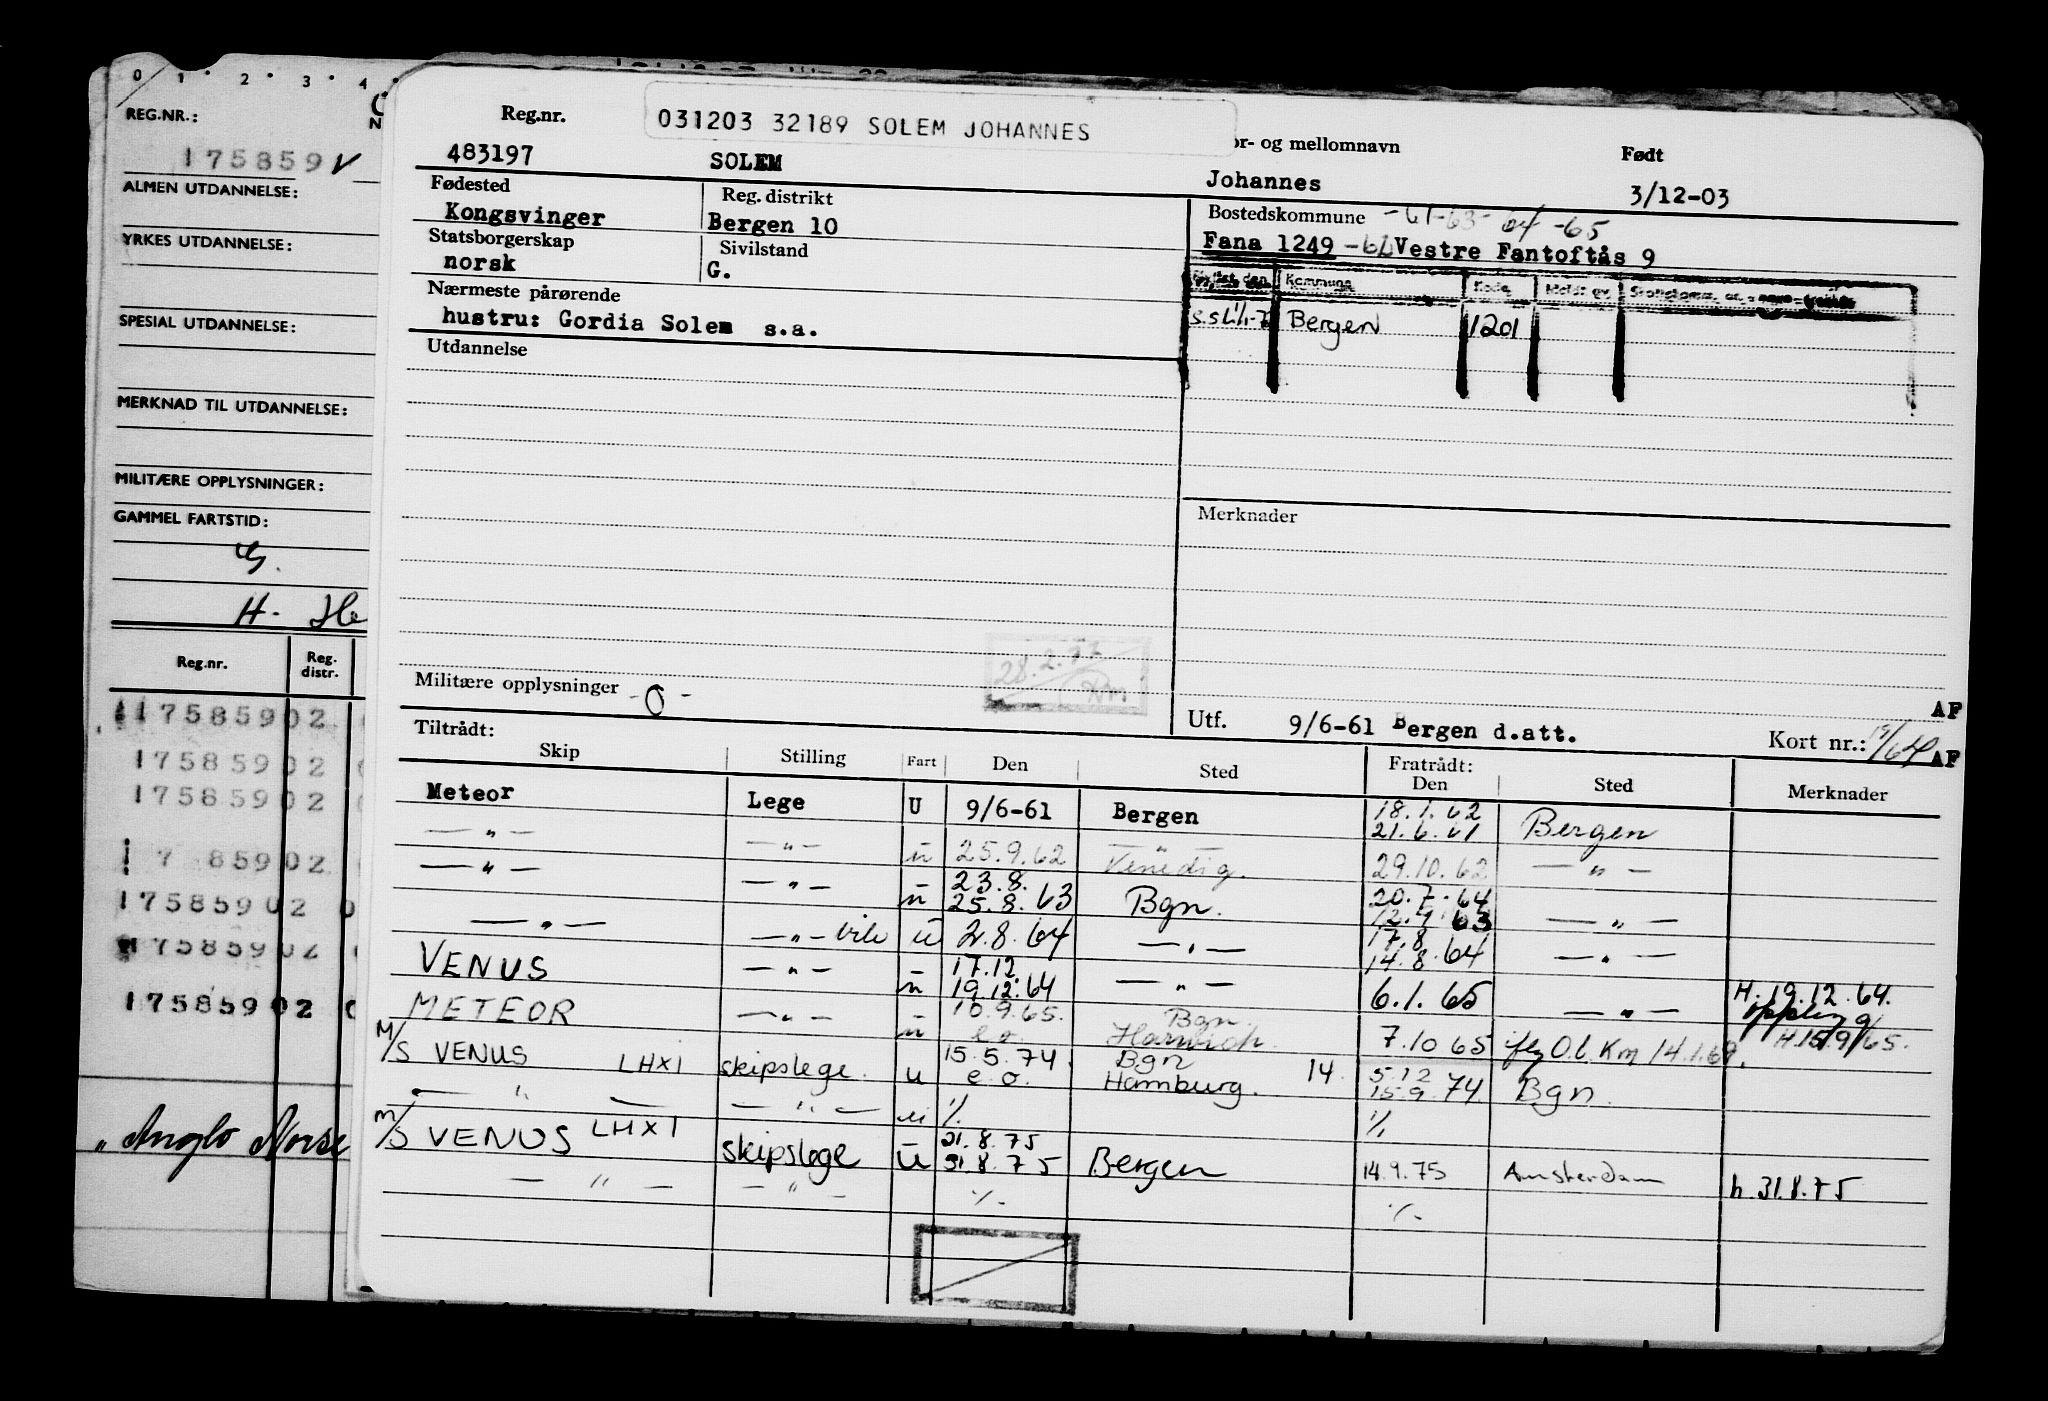 0 1 2 3 4
REG.NR.:
175859
ALMEN UTDANNELSE:
YRKES UTDANNELSE:
SPESIAL UTDANNELSE:
MERKNAD TIL UTDANNELSE:
MILITÆRE OPPLYSNINGER:
GAMMEL FARTSTID:
H.
Reg.nr. Reg. distr.
175859 02
175859 02
175859 02
1 7 859 02
175859 02 0
75859 02
175859 02
"Anglo Norse
Reg.nr. 031203 32189 SOLEM JOHANNES or- og mellomnavn Født
483197 SOLEM Johannes 3/12-03
Fødested Reg. distrikt Bostedskommune -61-63-64-65
Kongsvinger Bergen 10 Fana 1249 -62 Vestre Fantoftås 9
Statsborgerskap Sivilstand
norsk G.
Kommune Kode
Bergen 1201
Nærmeste pårørende
hustru: Gordia Solem s.a.
Utdannelse
Merknader
28.2.77
Militære opplysninger -0-
AF
Utf. 9/6-61 Bergen d.att. Kort nr.: AF
Tiltrådt: Fratrådt:
Skip Stilling Fart Den Sted Den Sted Merknader
Meteor Lege U 9/6-61 Bergen 18.1.62 21.6.61 Bergen
— " — — " — u 25.9.62 Venedig. 29.10.62 — " —
— " — — " — u 23.8. 25.8.63 Bgn. 20.7.64 12.9.63 — " —
— " — — " — u 2.8.64 — " — 17.8 14.8.64 — " —
VENUS — " — u 17.12 19.12.64 — " — 6.1.65 — " — H. 19.12.64.
METEOR — " — u 10.9.65. e.o. Bgn. Harwich. 7.10 65 Km 14.1.69. H.15/9/65.
M/S VENUS LHXI skipslege. u 15.5.74. e.o. Bgn Hamburg. 14. 5.12 15.9.74. Bgn.
— " — — " — u % %
M/S VENUS LHXI skipslege u 21.8.75 31.8.75 Bergen 14.9.75 Amsterdam h.31.8.75
— " — — " — % %